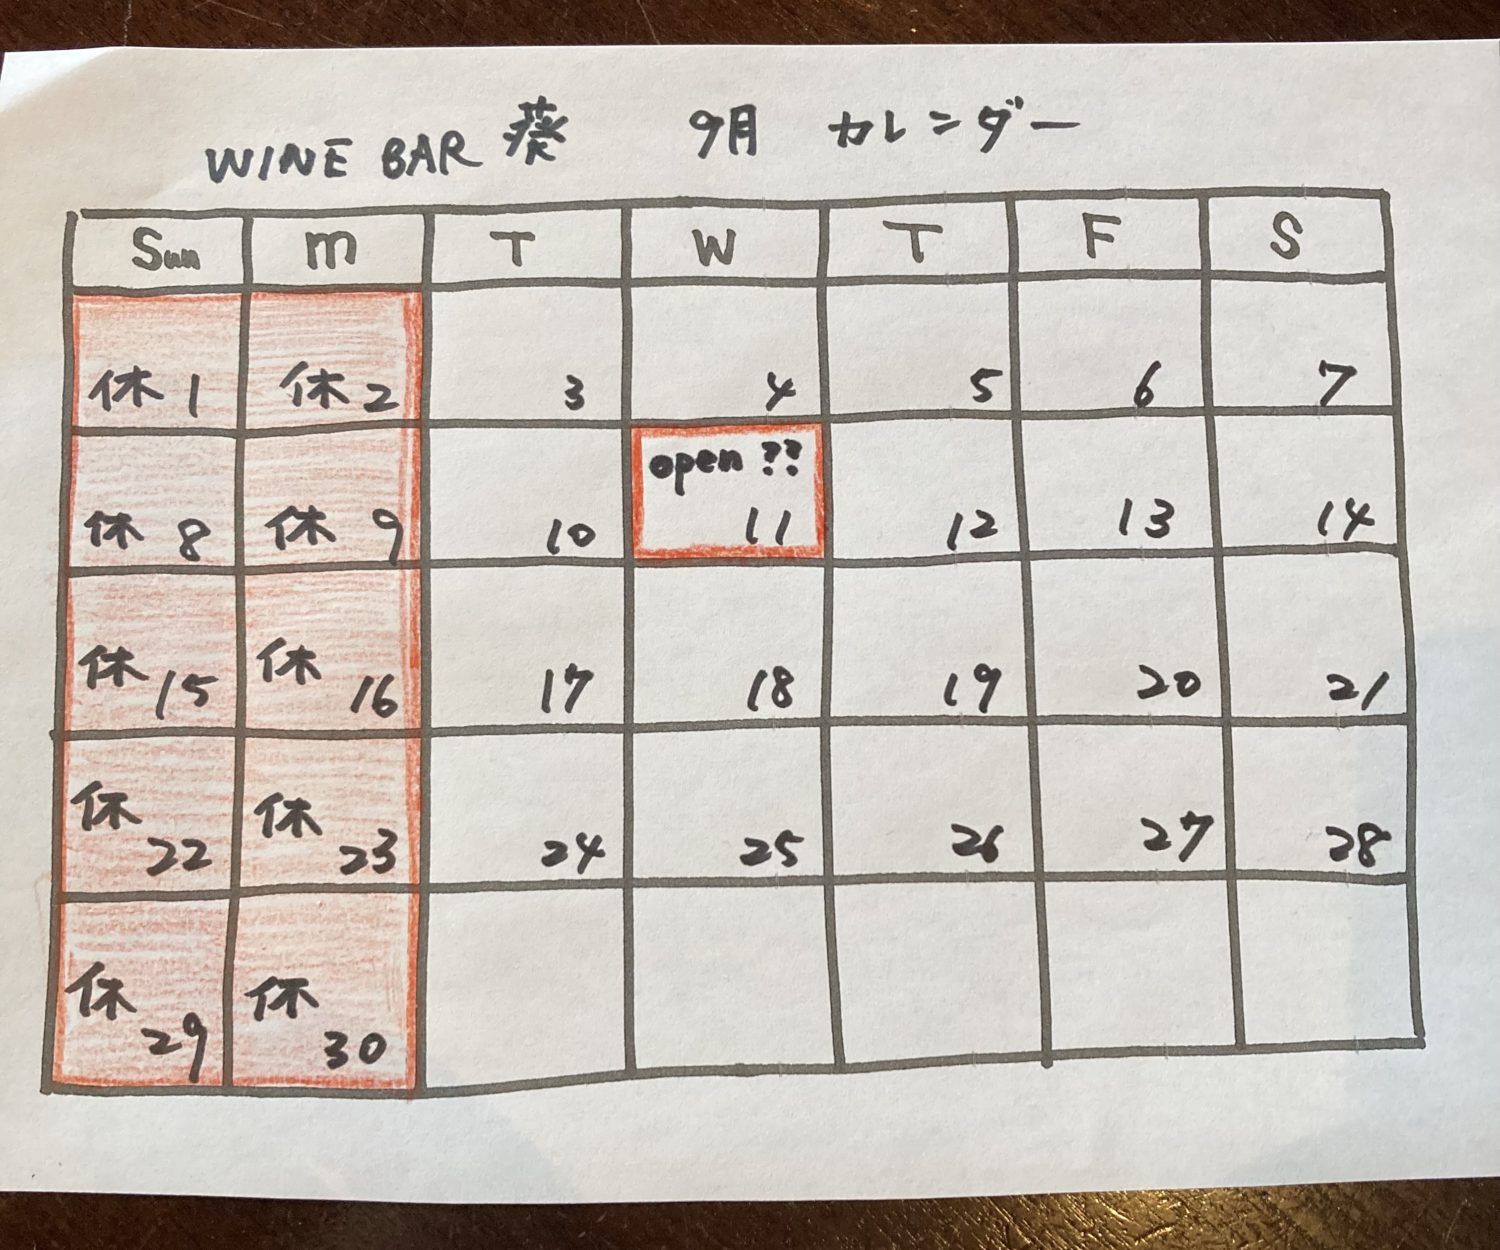 WINE BAR 葵 9月 カレンダー
Sun m T W T F S
休 1 休 2 3 4 5 6 7
open ??
休 8 休 9 10 11 12 13 14
休 15 休 16 17 18 19 20 21
休 22 休 23 24 25 26 27 28
休 29 休 30